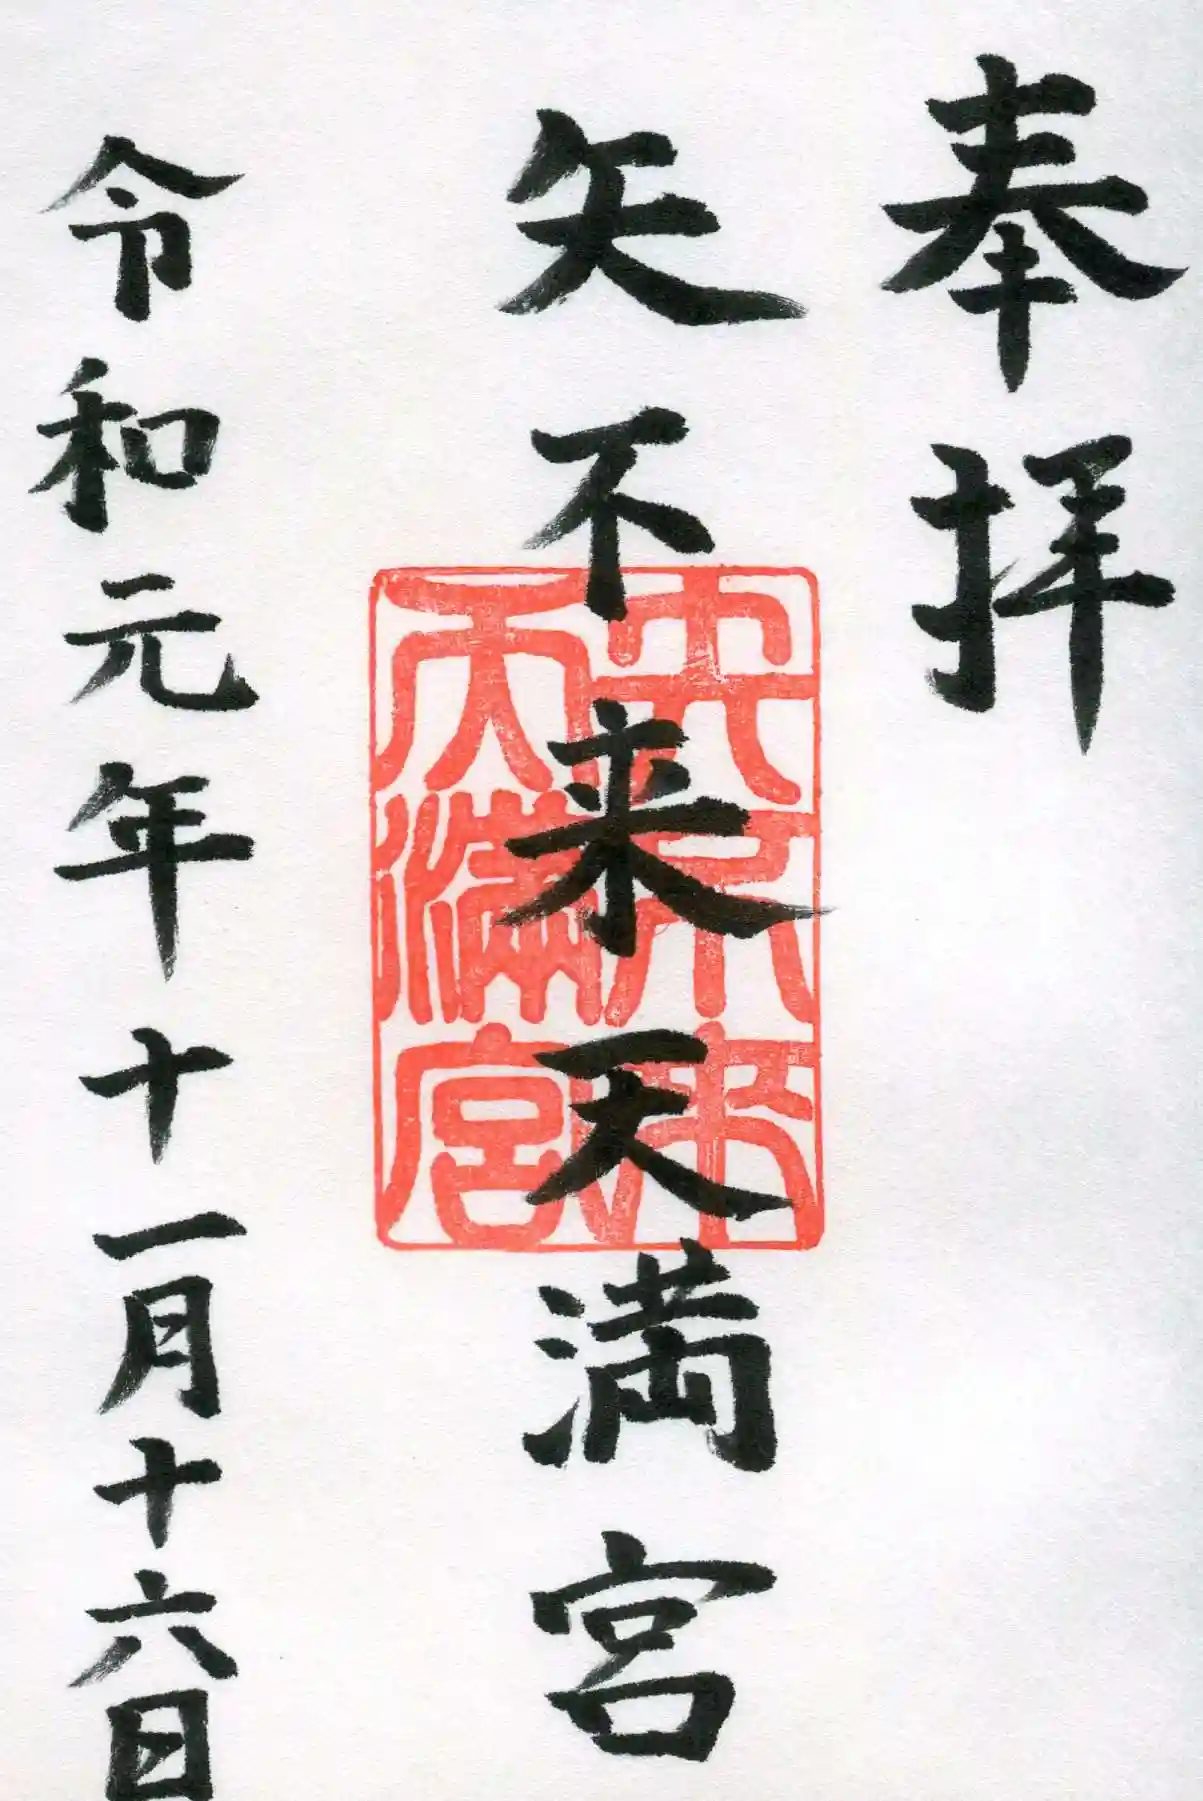 奉拝
矢不来天満宮
矢不来
天満宮
令和元年十一月十六日